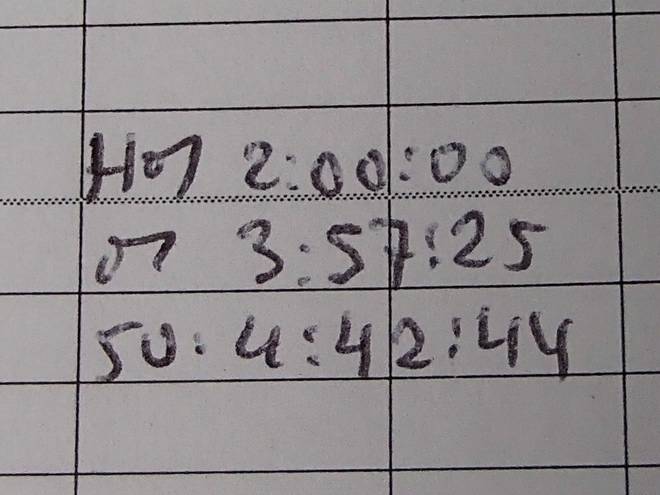 2:00:00
3:57:25
50. 4:42:44